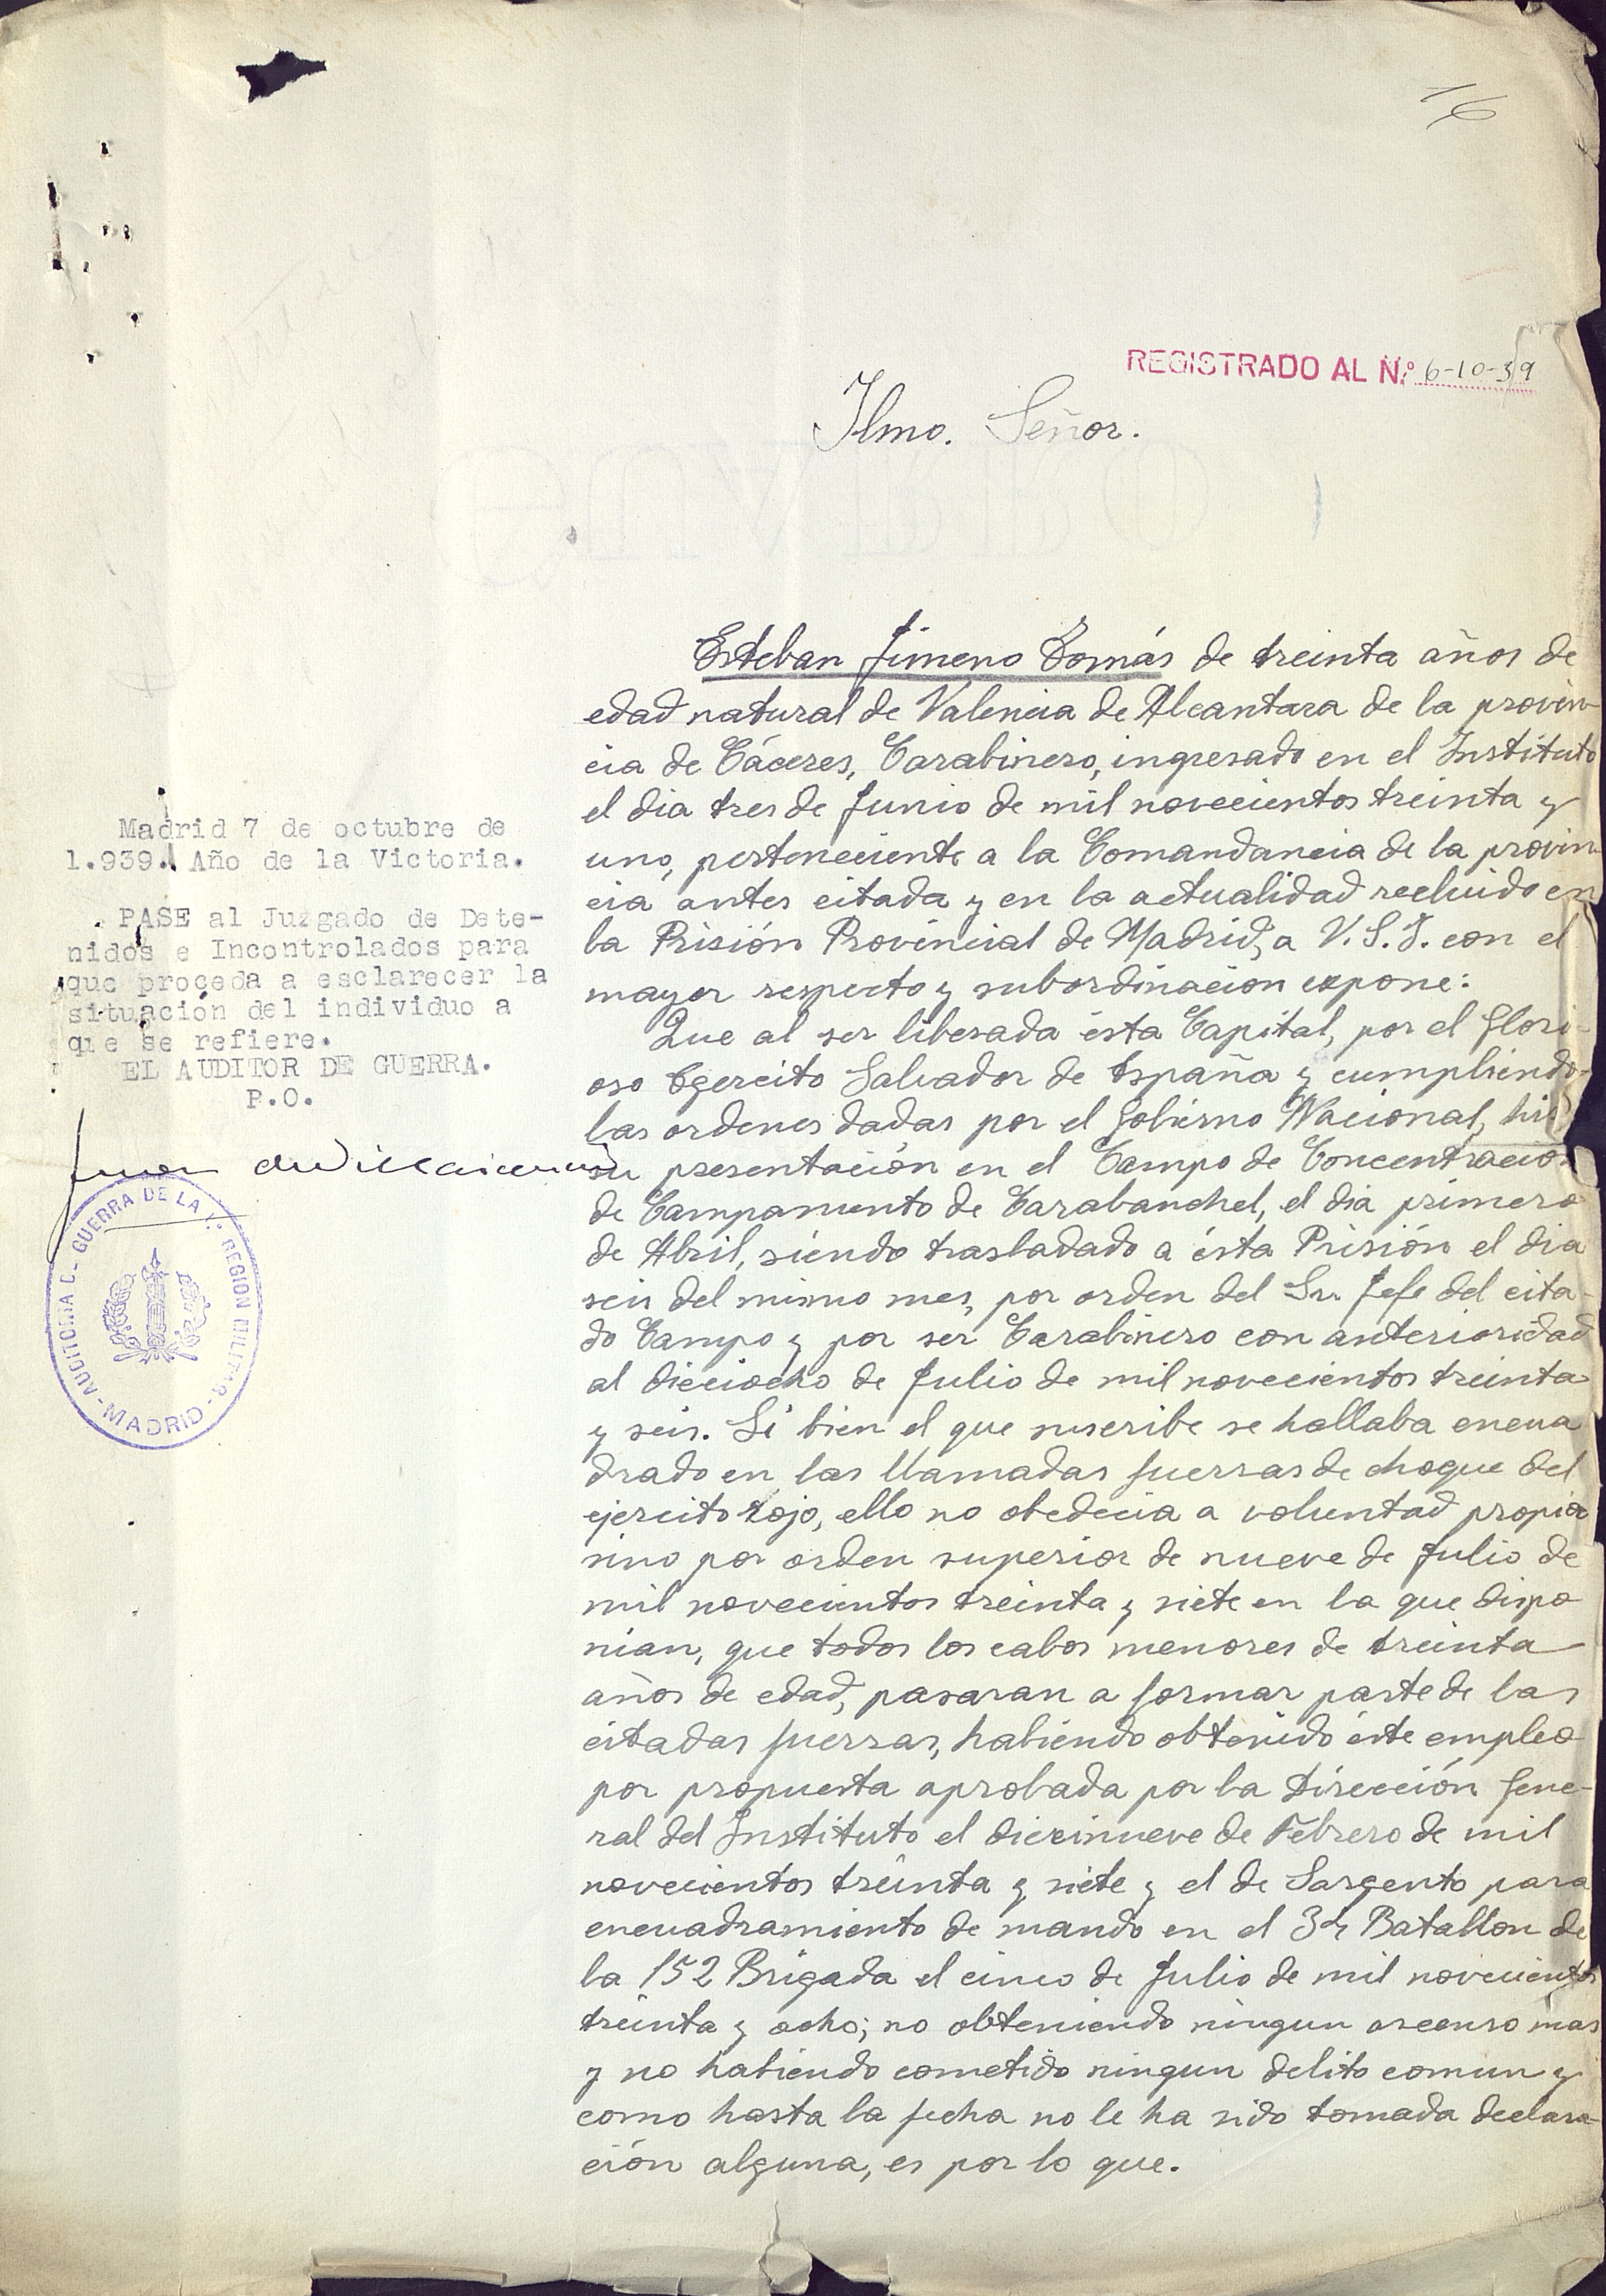 16
REGISTRADO AL N.º 6-10-39
Ilmo. Señor.
Esteban Jimeno Tomás de treinta años de
edad natural de Valencia de Alcantara de la provin-
cia de Cáceres, Carabinero, ingresado en el Instituto
el dia tres de Junio de mil novecientos treinta y
uno, perteneciente a la Comandancia de la provin-
cia antes citada y en la actualidad recluido en
la Prisión Provincial de Madrid, a V.S.I. con el
mayor respecto y subordinacion expone:
Que al ser liberada ésta Capital, por el glori-
oso Egercito Salvador de España y cumpliendo
las ordenes dadas por el Gobierno Nacional, hizo
su presentación en el Campo de Concentracion
de Campamento de Carabanchel, el dia primero
de Abril, siendo trasladado a ésta Prisión el dia
seis del mismo mes, por orden del Sr. Jefe del cita-
do Campo y por ser Carabinero con anterioridad
al dieciocho de Julio de mil novecientos treinta
y seis. Si bien el que suscribe se hallaba encua
drado en las llamadas fuerzas de choque del
ejercito rojo, ello no obedecia a voluntad propia
sino por orden superior de nueve de Julio de
mil novecientos treinta y siete en la que dispo
nian, que todos los cabos menores de treinta
años de edad, pasaran a formar parte de las
citadas fuerzas, habiendo obtenido éste empleo
por propuesta aprobada por la Dirección Gene-
ral del Instituto el diecinueve de Febrero de mil
novecientos treinta y siete y el de Sargento para
encuadramiento de mando en el 3er Batallon de
la 152 Brigada el cinco de Julio de mil novecientos
treinta y ocho; no obteniendo ningun ascenso mas
y no habiendo cometido ningun delito comun y
como hasta la fecha no le ha sido tomada declara-
ción alguna, es por lo que.
Madrid 7 de octubre de
1.939. Año de la Victoria.
PASE al Juzgado de Dete-
nidos e Incontrolados para
que proceda a esclarecer la
situación del individuo a
que se refiere.
EL AUDITOR DE GUERRA.
P.O.
AUDITORIA DE GUERRA DE LA 1ª REGION MILITAR
-MADRID-